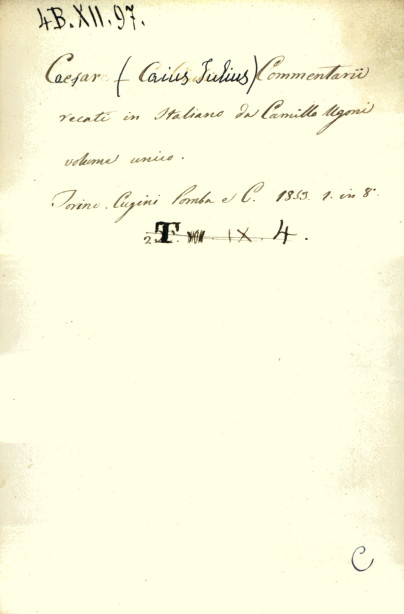 4B.XII.97.
Caesar (Caius Julius) Commentarii
recati in Italiano da Camillo Ugoni
volume unico.
Torino. Cugini Pomba e C. 1853. 1. in 8º
T IX. 4.
C